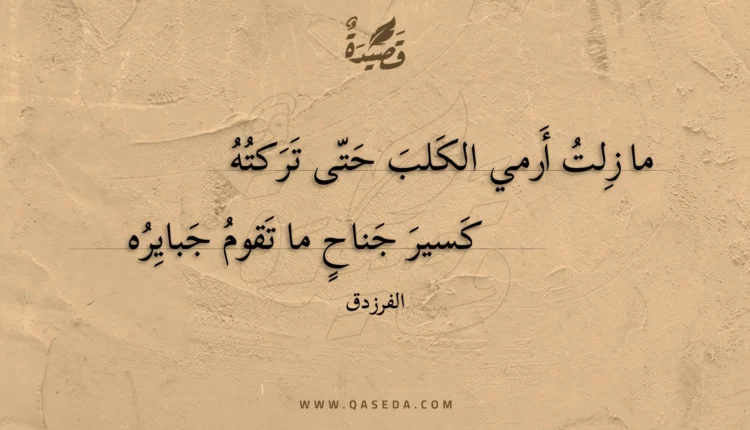 قَصِيْدَةٌ
ما زِلتُ أَرمي الكَلبَ حَتّى تَرَكتُهُ
كَسيرَ جَناحٍ ما تَقومُ جَبايِرُه
الفرزدق
WWW.QASEDA.COM